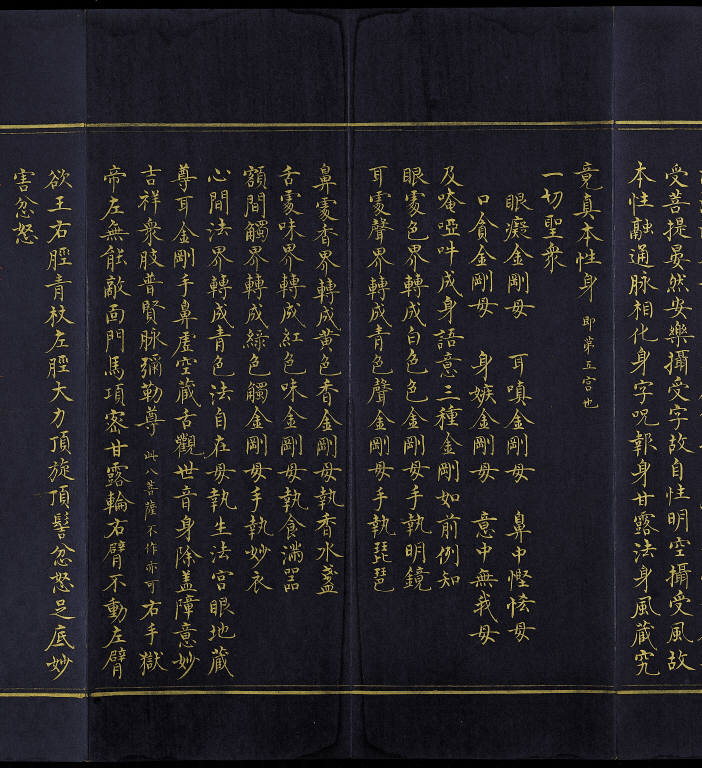 受菩提㬅然安樂攝受字故自性明空攝受風故
本性融通脉相化身字呪報身甘露法身風藏究
竟真本性身 即第五宮也
一切聖衆
眼癡金剛母 耳嗔金剛母 鼻中慳悋母
口貪金剛母 身嫉金剛母 意中無我母
及唵啞吽成身語意三種金剛如前例知
眼處色界轉成白色色金剛母手執明鏡
耳處聲界轉成青色聲金剛母手執琵琶
鼻處香界轉成黄色香金剛母執香水盞
舌處味界轉成紅色味金剛母執食滿器
額間觸界轉成綠色觸金剛母手執妙衣
心間法界轉成青色法自在母執生法宮眼地藏
尊耳金剛手鼻虛空藏古觀世音身除盖障意妙
吉祥衆肢普賢脉彌勒尊 此八菩薩不作亦可 右手獄
帝左無能敵面門馬項密甘露輪右臂不動左臂
欲王右脛青杖左脛大力頂旋頂髻忿怒足底妙
害忿怒